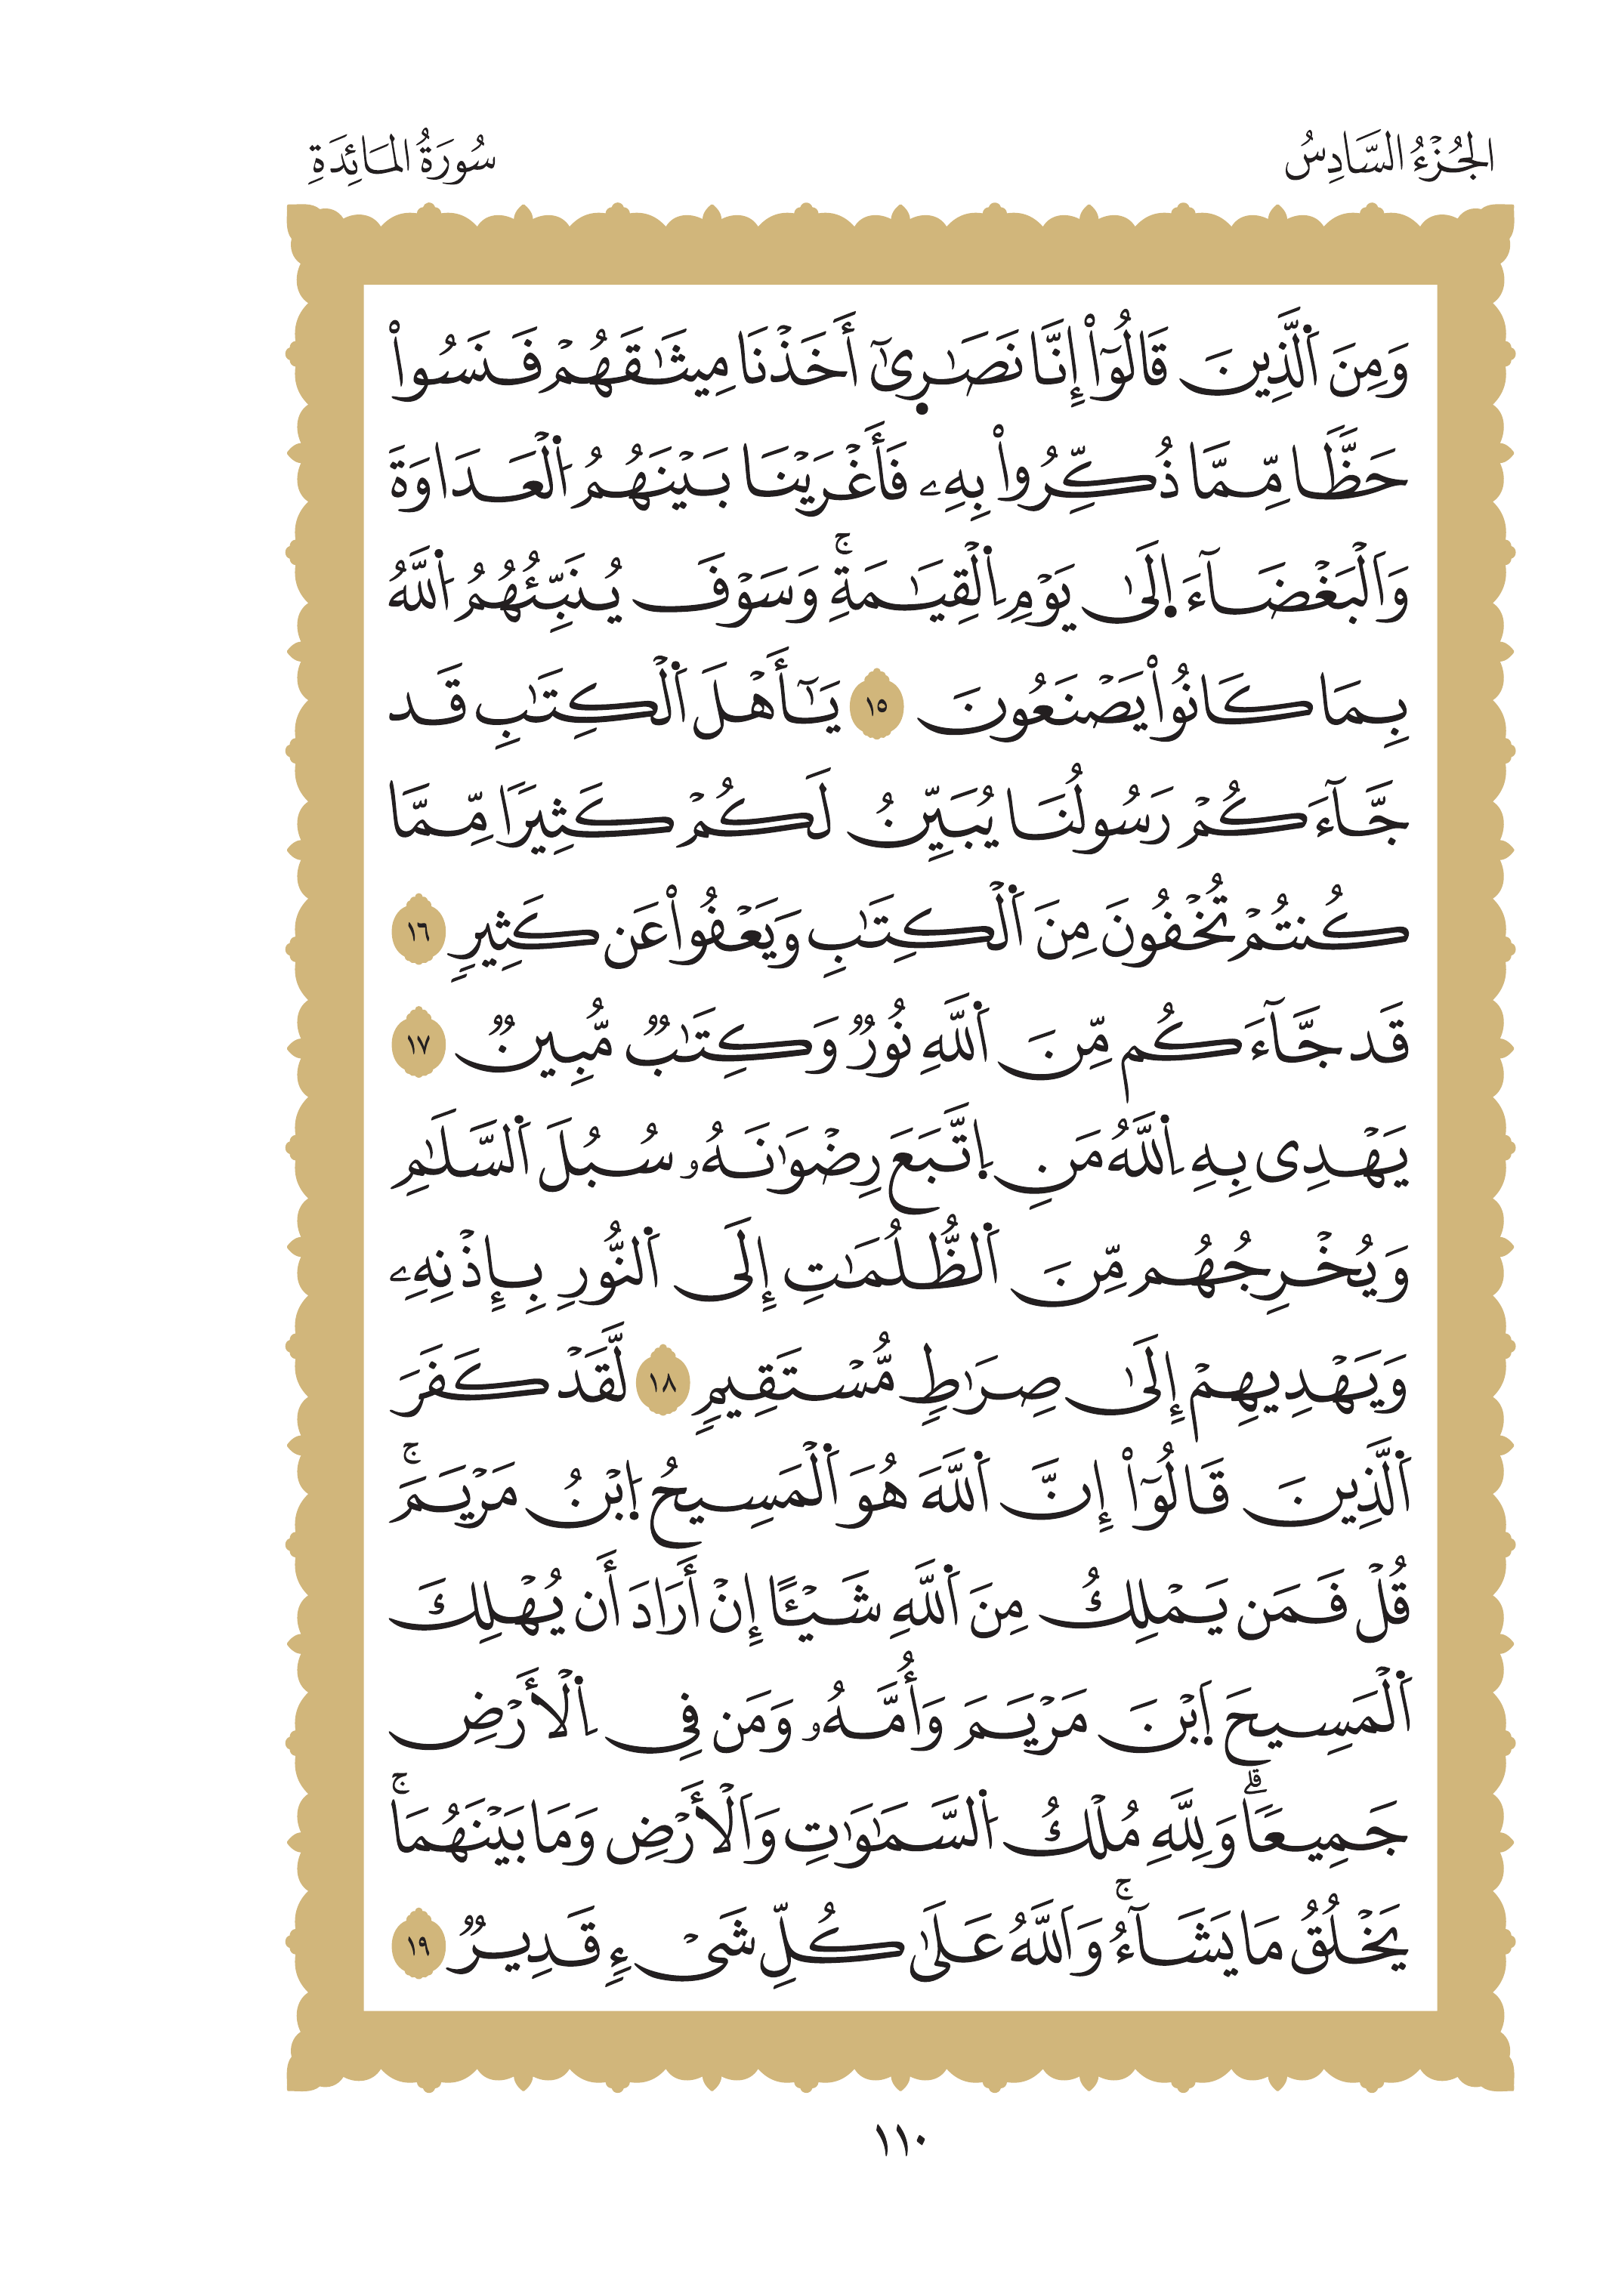 الجُزْءُ السَّادِسُ
سُورَةُ المَائِدَةِ
وَمِنَ اَ۬لَّذِينَ قَالُوٓاْ إِنَّا نَصَٰر۪ىٰٓ أَخَذْنَا مِيثَٰقَهُمْ فَنَسُواْ
حَظّٗا مِّمَّا ذُكِّرُواْ بِهِۦ فَأَغْرَيْنَا بَيْنَهُمُ اُ۬لْعَدَاوَةَ
وَاَلْبَغْضَآءَ اِ۪لَىٰ يَوْمِ اِ۬لْقِيَٰمَةِۚ وَسَوْفَ يُنَبِّئُهُمُ اُ۬للَّهُ
بِمَا كَانُواْ يَصْنَعُونَ ١٥ يَٰٓأَهْلَ اَ۬لْكِتَٰبِ قَد
جَّآءَكُمْ رَسُولُنَا يُبَيِّنُ لَكُمْ كَثِيرٗا مِّمَّا
كُنتُمْ تُخْفُونَ مِنَ اَ۬لْكِتَٰبِ وَيَعْفُواْ عَن كَثِيرٖ ١٦
قَد جَّآءَكُم مِّنَ اَ۬للَّهِ نُورٞ وَكِتَٰبٞ مُّبِينٞ ١٧
يَهْدِى بِهِ اِ۬للَّهُ مَنِ اِ۪تَّبَعَ رِضْوَٰنَهُۥ سُبُلَ اَ۬لسَّلَٰمِ
وَيُخْرِجُهُم مِّنَ اَ۬لظُّلُمَٰتِ إِلَى اَ۬لنُّورِ بِإِذْنِهِۦ
وَيَهْدِيهِمْ إِلَىٰ صِرَٰطٖ مُّسْتَقِيمٖ ١٨ لَّقَدْ كَفَرَ
اَ۬لَّذِينَ قَالُوٓاْ إِنَّ اَ۬للَّهَ هُوَ اَ۬لْمَسِيحُ اِ۪بْنُ مَرْيَمَۚ
قُلْ فَمَن يَمْلِكُ مِنَ اَ۬للَّهِ شَيْـًٔا إِنْ أَرَادَ أَن يُهْلِكَ
اَ۬لْمَسِيحَ اَ۪بْنَ مَرْيَمَ وَأُمَّهُۥ وَمَن فِى اِ۬لْأَرْضِ
جَمِيعٗاۗ وَلِلَّهِ مُلْكُ اُ۬لسَّمَٰوَٰتِ وَاَلْأَرْضِ وَمَا بَيْنَهُمَاۚ
يَخْلُقُ مَا يَشَآءُۚ وَاَللَّهُ عَلَىٰ كُلِّ شَىْءٖ قَدِيرٞ ١٩
١١٠